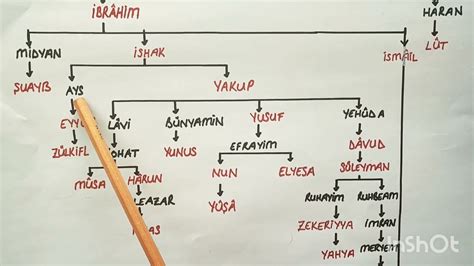 İBRÂHİM
HARAN
MİDYAN
İSHAK
İSMÂİL
LÛT
ŞUAYB
AYS
YAKUP
LÂVİ
BÜNYAMİN
YUSUF
YEHÛDA
ZÜLKİFL
YUNUS
EFRAYİM
DÂVUD
MÛSA
HÂRUN
NUN
ELYESA
SÜLEYMAN
YÛŞÂ
RUHAYİM
RUHBEAM
ZEKERİYYA
İMRAN
YAHYA
MERYEM
InShOt